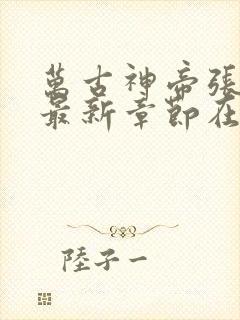 萬古神帝張
最新章節在
陸子一